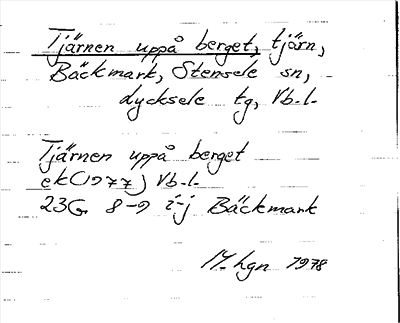 Tjärnen uppå berget, tjärn,
Bäckmark, Stensele sn,
Lycksele tg, Vb.l.
Tjärnen uppå berget
ek(1977) Vb.l.
23G 8-9 i-j Bäckmark
hgn 1978